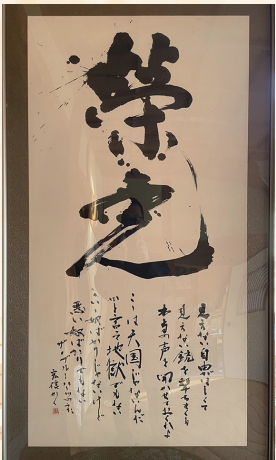 榮光
見えない自由がほしくて
見えない銃を撃ちまくる
本当の声を聞かせておくれよ
ここは天国じゃないんだ
かと言って地獄でもない
いい奴ばかりじゃないけど
悪い奴ばかりでもない
ザ・ブルーハーツの